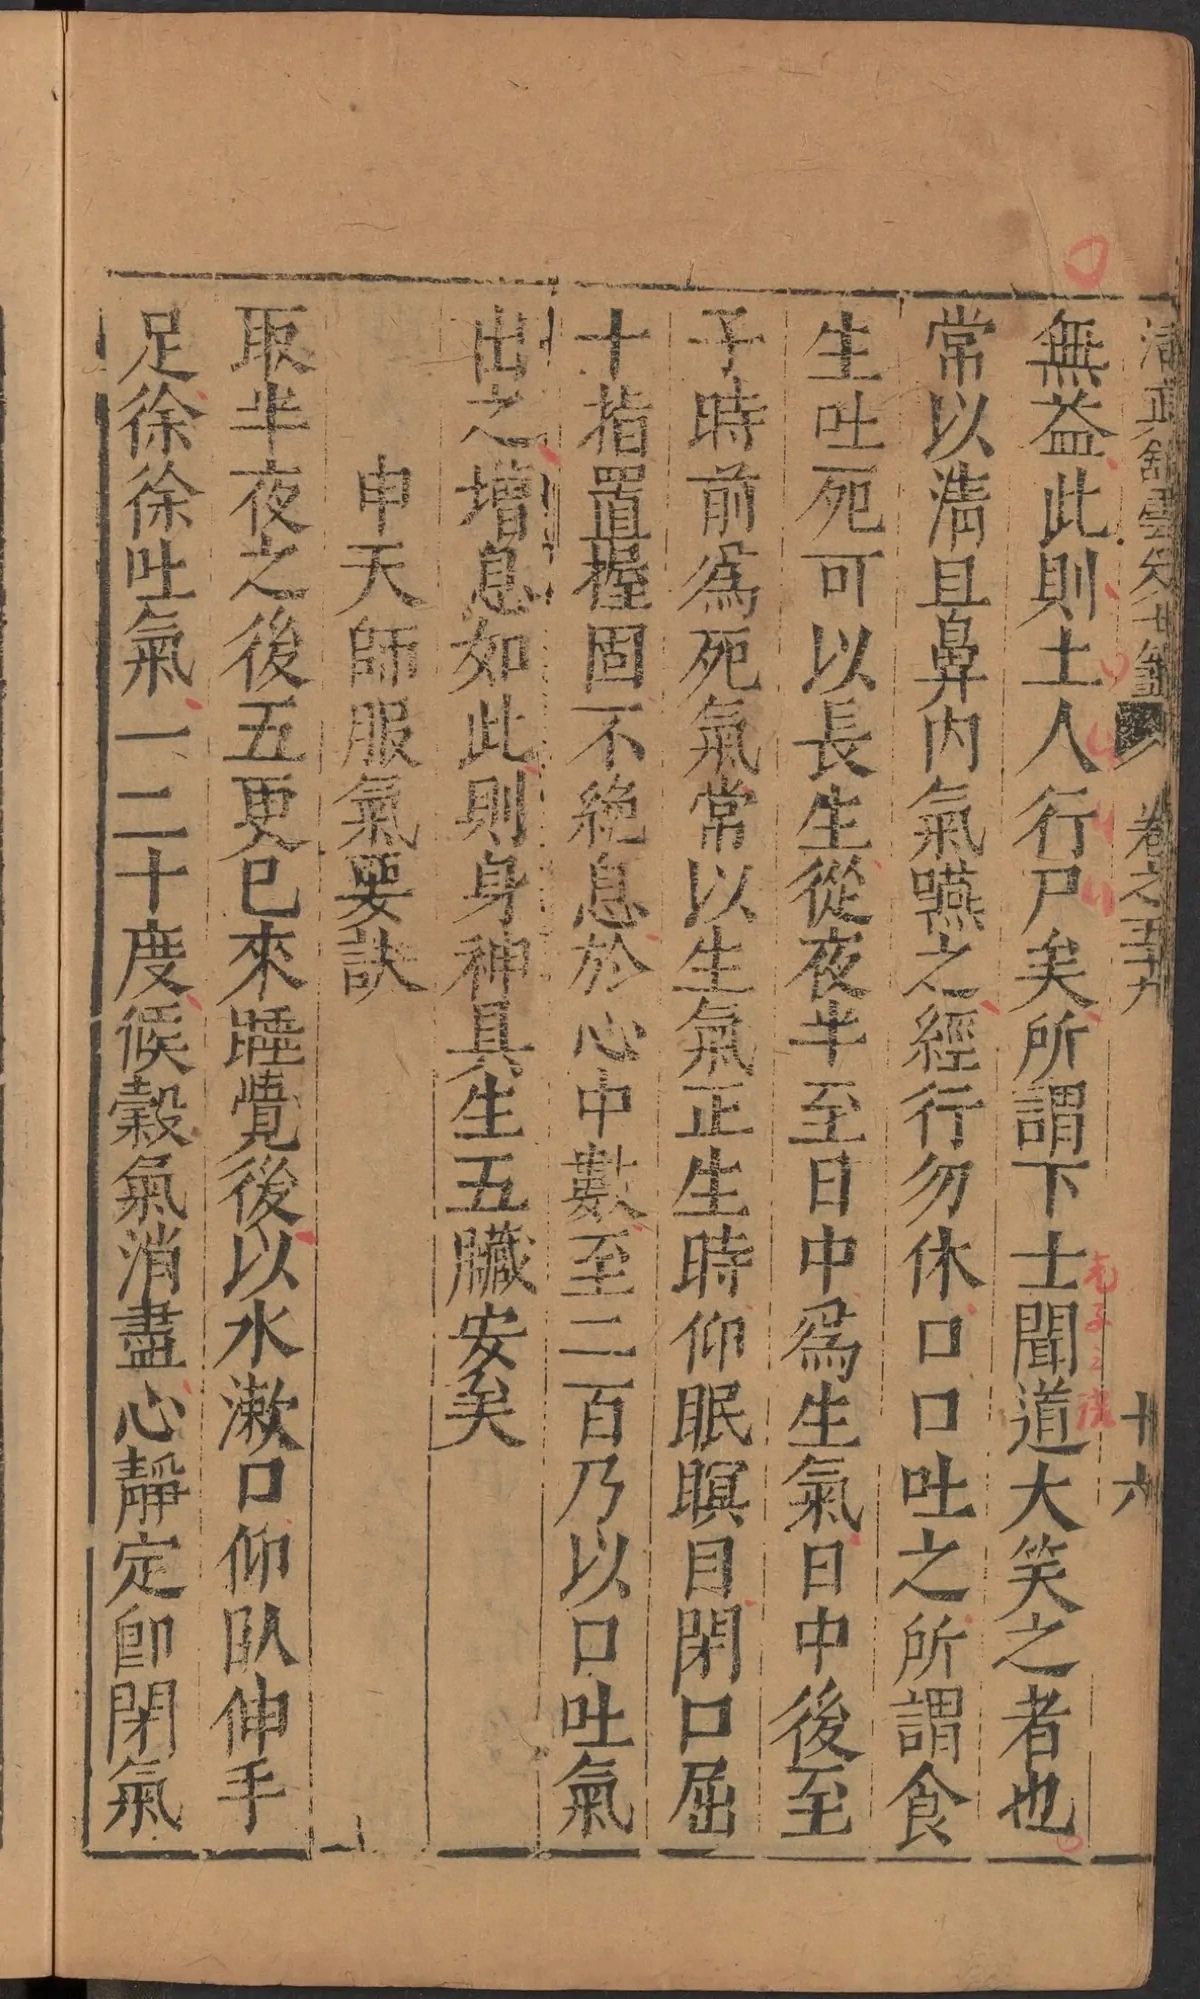 清眞舘雲笈七籤 卷之五十九 十六
無益此則土人行尸矣所謂下士聞道大笑之者也
老子之
常以淸旦鼻內氣嚥之經行勿休口口吐之所謂食
生吐死可以長生從夜半至日中爲生氣日中後至
子時前爲死氣常以生氣正生時仰眠瞑目閉口屈
十指置握固不絶息於心中數至二百乃以口吐氣
出之增息如此則身神具生五臟安矣
申天師服氣要訣
取半夜之後五更已來睡覺後以水漱口仰臥伸手
足徐徐吐氣一二十度候穀氣消盡心靜定卽閉氣